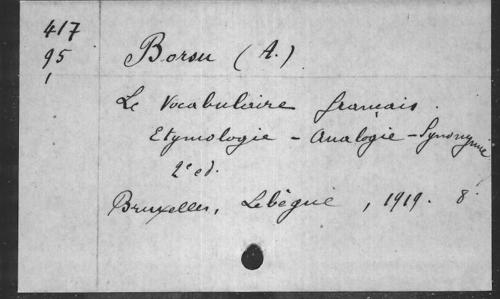 417
95
1
Borsu (A.)
Le Vocabulaire français.
Etymologie - Analogie - Synonymie
2e ed.
Bruxelles, Lebègue, 1919. 8°